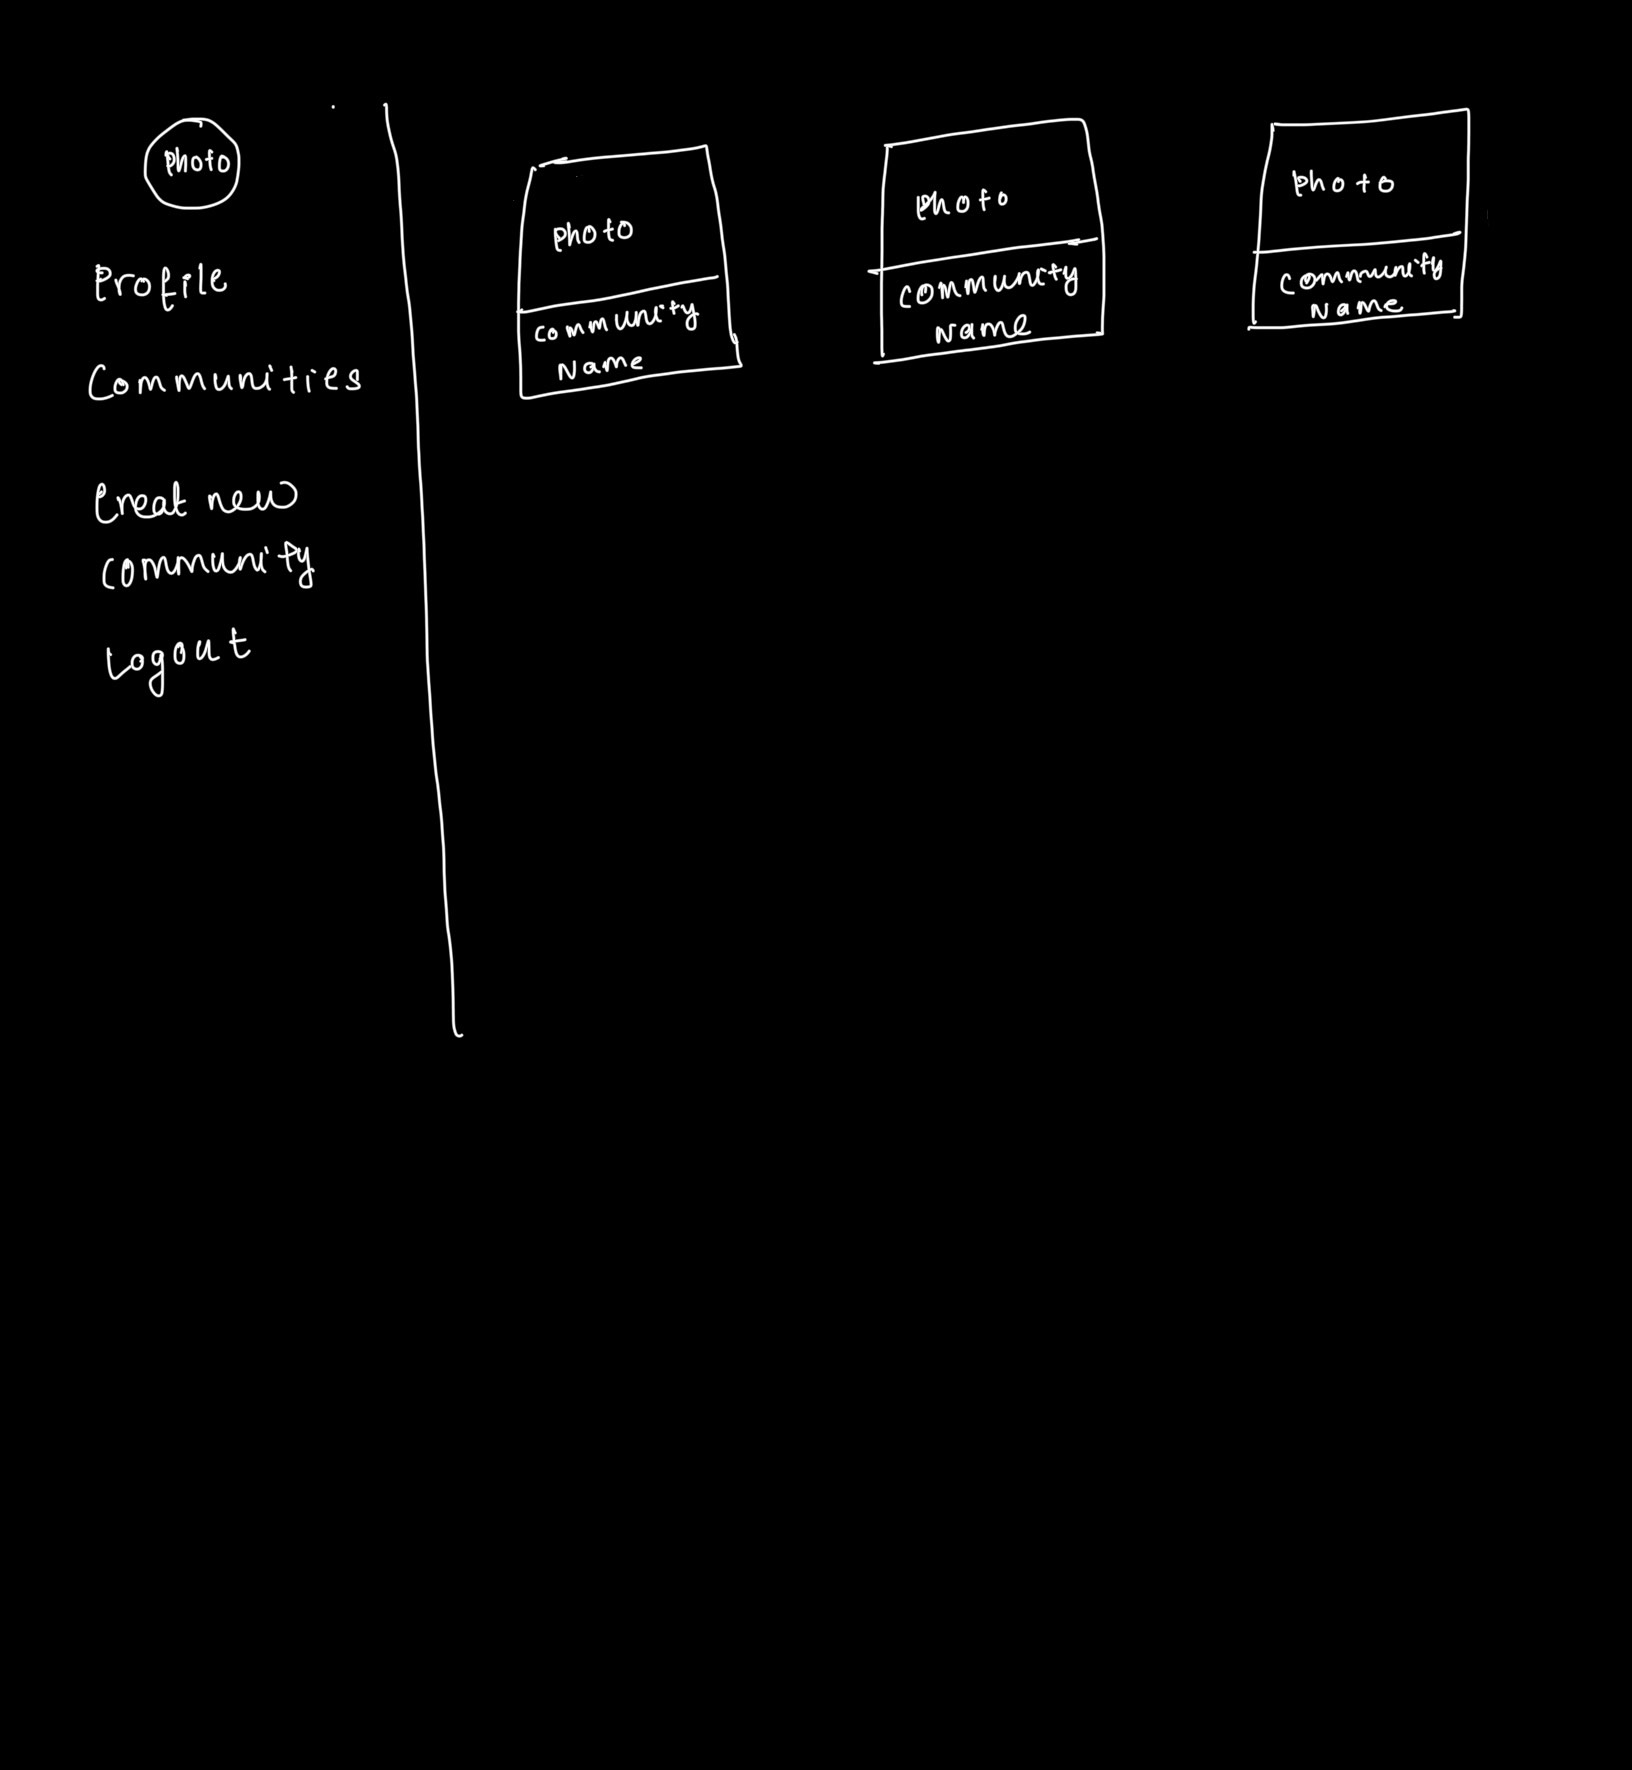 Photo
Profile
Communities
Creat new
community
Logout
Photo
community
Name
Photo
community
Name
Photo
community
Name